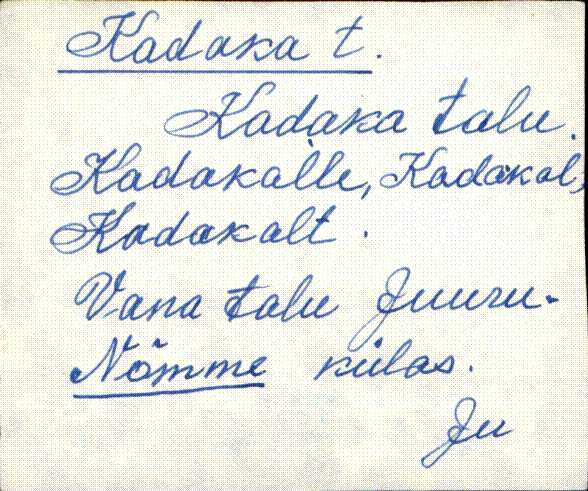 Kadaka t.
Kadaka talu.
Kadakalle, Kadakal,
Kadakalt.
Vana talu Juuru-
Nõmme külas.
Ju